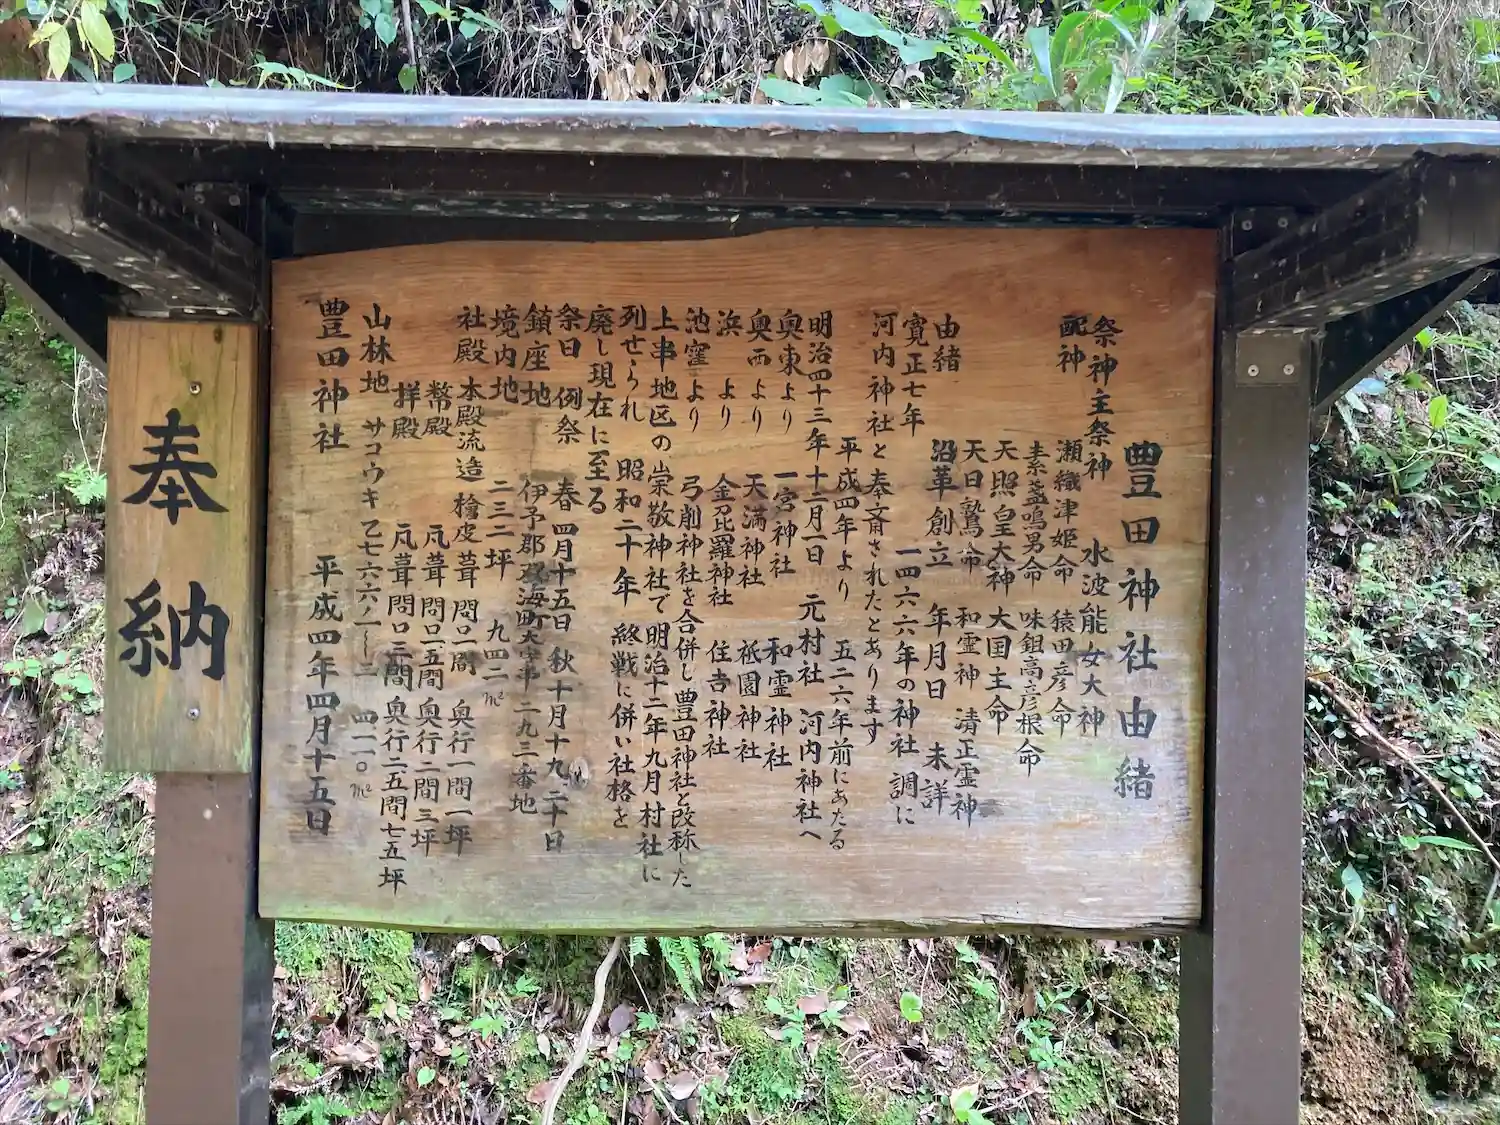 豊田神社由緒
祭神主祭神 水波能女大神
配神 瀬織津姫命 猿田彦命
素盞鳴男命 味鉏高彦根命
天照皇大神 大国主命
天日鷲命 和霊神 清正霊神
由緒 沿革創立 年月日 未詳
寛正七年 一四六六年の神社調に
河内神社と奉斎されたとあります
平成四年より 五二六年前にあたる
明治四十三年十二月一日 元村社 河内神社へ
奥東より 一宮神社 和霊神社
奥西より 天満神社 祗園神社
浜より 金刀比羅神社 住吉神社
池窪より 弓削神社を合併し豊田神社と改称した
上串地区の崇敬神社で明治十二年九月村社に
列せられ 昭和二十年 終戦に併い社格を
廃し現在に至る
祭日 例祭 春 四月十五日 秋 十月十九、二十日
鎮座地 伊予郡双海町大字串二九三番地
境内地 二三二坪 九四二㎡
社殿 本殿流造 檜皮葺 間口一間 奥行一間 一坪
幣殿 凡葺 間口二五間 奥行二間 三坪
拝殿 凡葺 間口三間 奥行二五間 七五坪
山林地 サコウキ 乙七六六ノ一〜二 四一一〇㎡
豊田神社 平成四年四月十五日
奉納